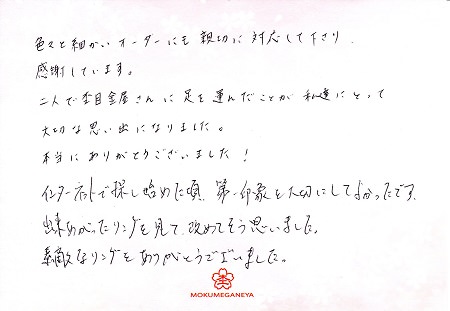 色々と細かいオーダーにも親切に対応して下さり、
感謝しています。
二人で杢目金屋さんに足を運んだことが私達にとって
大切な思い出になりました。
本当にありがとうございました！
インターネットで探し始めた頃、第一印象を大切にしてよかったです。
出来あがったリングを見て、改めてそう思いました。
素敵なリングをありがとうございました。
MOKUMEGANEYA